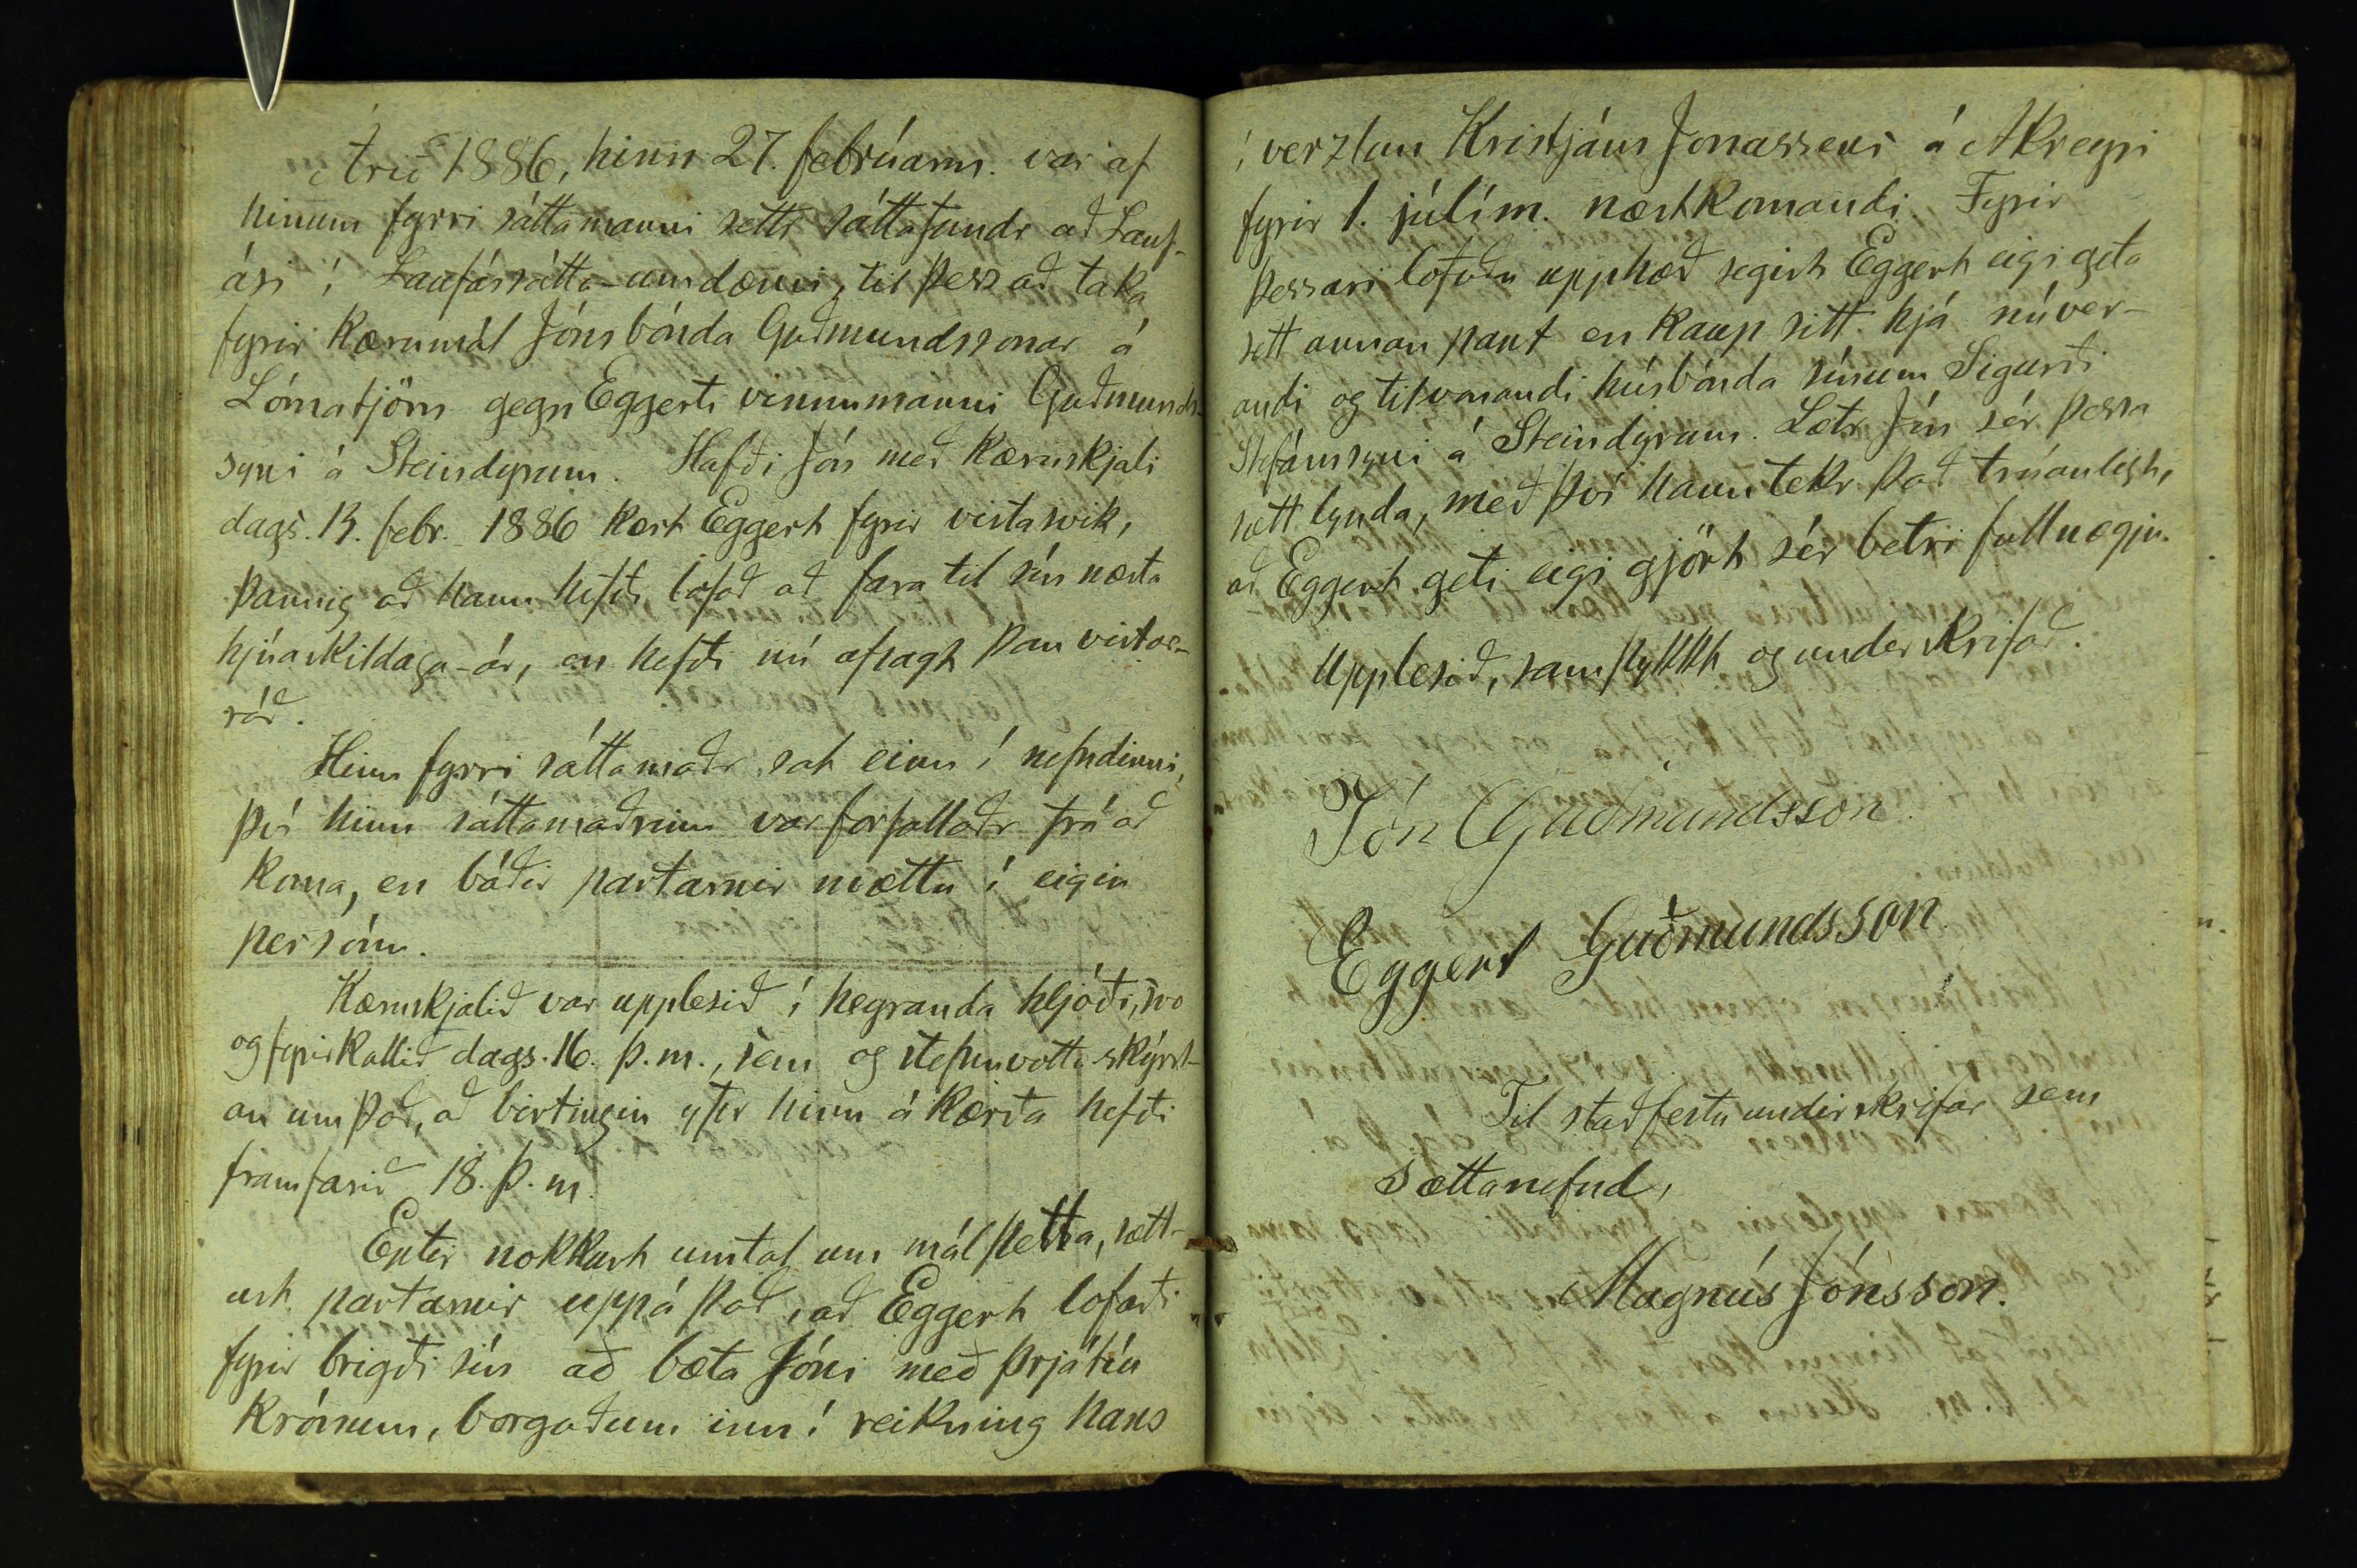 Árið 1886, hinn 27. febrúarm. var af
hinum fyrri sáttamanni settr sáttafundr að Lauf-
ási í Laufássátta-umdæmi, til þess að taka
fyrir kærumál Jóns bónda Guðmundssonar á
Lómatjörn gegn Eggerti vinnumanni Guðmunds-
syni á Steindyrum. Hafði Jón með kæruskjali
dags. 13. febr. 1886 kært Eggert fyrir vistasvik,
þannig að hann hefði lofað að fara til sín næsta
hjúaskildaga-ár, en hefði nú afsagt þau vistar-
ráð.
Hinn fyrri sáttamaðr sat einn í nefndinni,
því hinn sáttamaðrinn var forfallaðr frá að
koma, en báðir partarnir mættu í eigin
persónu.
Kæruskjalið var upplesið í heyranda hljóði, svo
og fyrirkallið dags. 16. þ. m., sem og stefnuvotta-skýrsl-
an um það, að birtingin yfir hinn ákærða hefði
framfarið 18. þ. m.
Eptir nokkurt umtal um mál þetta, sætt-
ust partarnir uppá það, að Eggert lofaði
fyrir brigði sín að bæta Jóni með þrjátíu
krónum, borgaðum inní reikning hans
í verzlun Kristjáns Jonassens á Akreyri
fyrir 1. júlím. næstkomandi. Fyrir
þessari lofuðu upphæð segist Eggert eigi geta
sett annan pant en kaup sitt hjá núver-
andi og tilvonandi húsbónda sínum Sigurði
Stefánssyni á Steindyrum. Lætr Jón sér þessa
sætt lynda, með því hann tekr það trúanlegt,
að Eggert geti eigi gjört sér betri fullnægju.
Upplesið, samþykkt og underskrifað.
Jón Guðmundsson.
Eggert Guðmundsson.
Til staðfestu undirskrifar sem
Sættanefnd,
Magnús Jónsson.